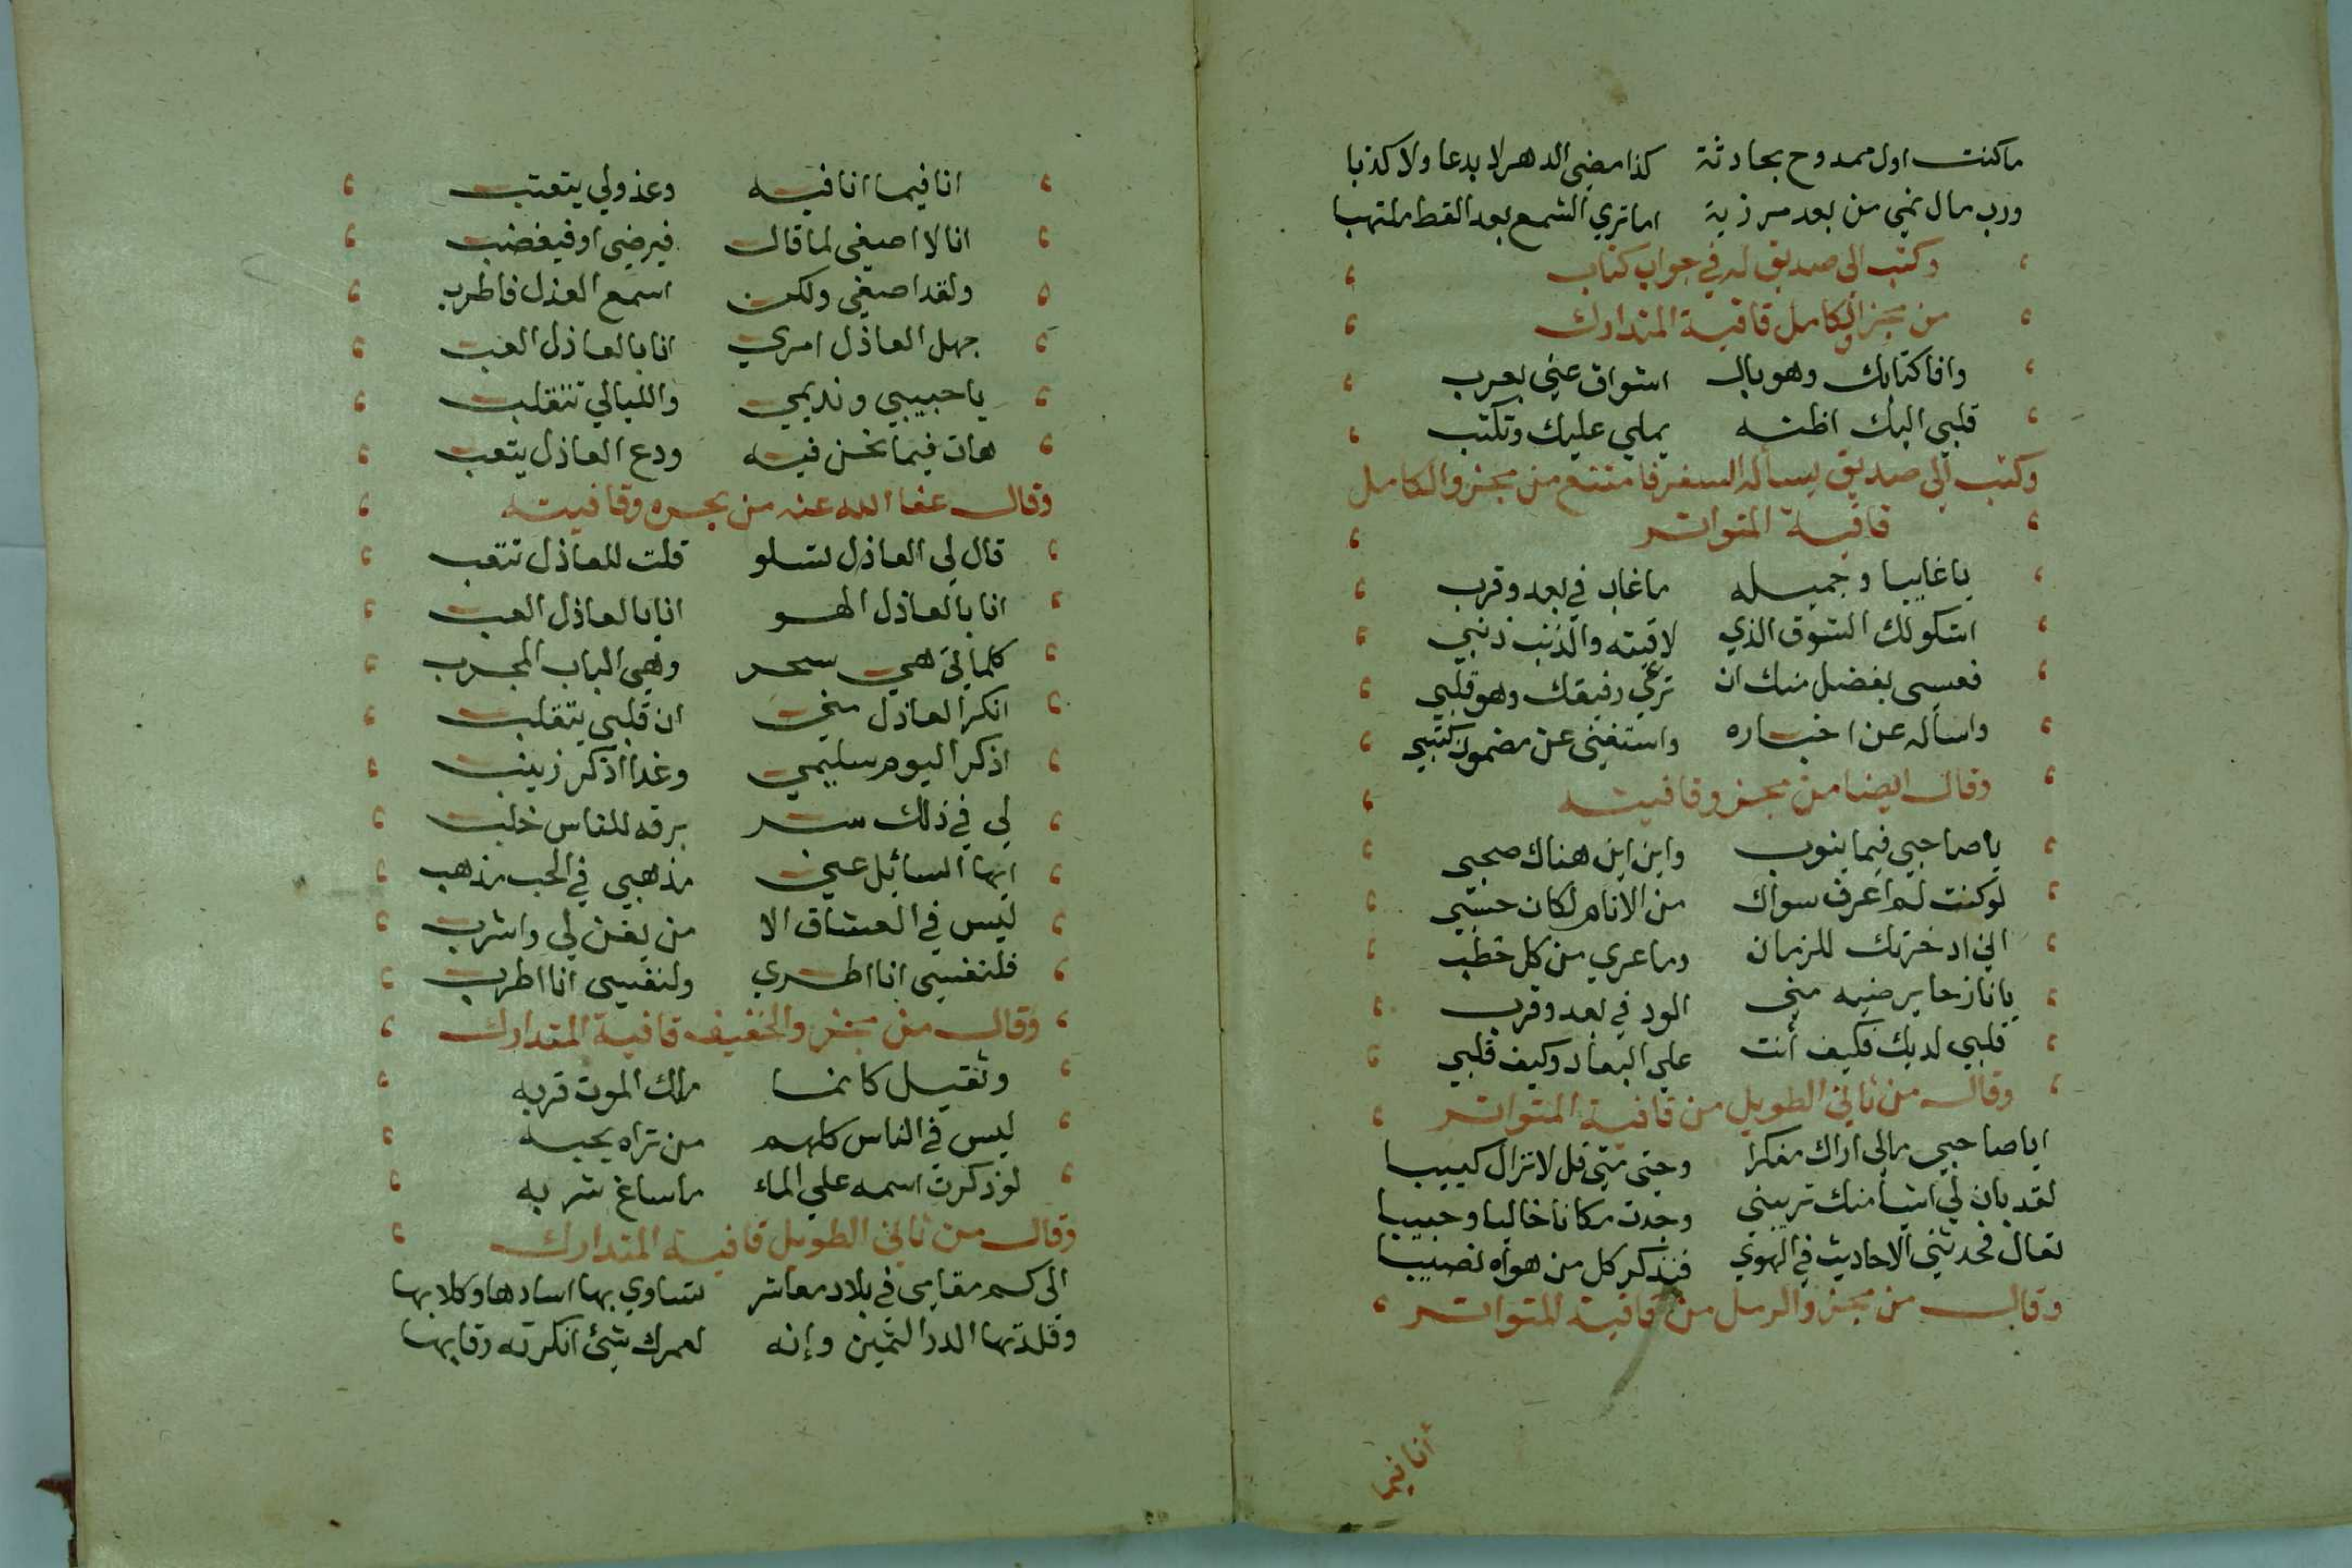 ماكنت اول ممدوح بحادثة كذا مضي الدهر لا بدعا ولا كذبا
ورب مال نمي من بعد مرزية اما تري الشمع بعد القط ملتهبا
وكتب الي صديق له في جواب كتاب
من مجزو الكامل قافية المتدارك
وافا كتابك وهو بال اشواق عني يعرب
قلبي اليك اظنه يملي عليك وتكتب
وكتب الي صديق يساله السفر فامتنع من مجزو الكامل
قافية المتواتر
يا غايبا وجميله ما غاب في بعد وقرب
اشكو لك الشوق الذي لاقيته والذنب ذنبي
فعسي بفضل منك ان ترعي رفيقك وهو قلبي
واساله عن اخباره واستغني عن مضمون كتبي
وقال ايضا من بحره وقافيته
يا صاحبي فيما ينوب واين اين هناك صحبي
لو كنت لم اعرف سواك من الانام لكان حسبي
اني ادخرتك للزمان وما عري من كل خطب
يا نازحا يرضيه مني الود في بعد وقرب
قلبي لديك فكيف أنت علي البعاد وكيف قلبي
وقال من ثاني الطويل من قافية المتواتر
ايا صاحبي مالي اراك مفكرا وحتي متي قل لا تزال كييبا
لقد بان لي اشيا منك تريبني وجدت مكانا خاليا وحبيبا
تعال فحدثني الاحاديث في الهوي فيذكر كل من هواه نصيبا
وقال من مجزو الرمل من قافية المتواتر
أنا فيما
انا فيما انا فيه وعذولي يتعتب
انا لا اصغي لما قال فيرضي او فيغضب
ولقد اصغي ولكن اسمع العذل فاطرب
جهل العاذل امري انا بالعاذل العب
يا حبيبي ونديمي والليالي تتقلب
هات فيما نحن فيه ودع العاذل يتعب
وقال عفا الله عنه من بحره وقافيته
قال لي العاذل تسلو قلت للعاذل تتعب
انا بالعاذل الهو انا بالعاذل العب
كلماتي هي سحر وهي الباب المجرب
انكر العاذل مني ان قلبي يتقلب
اذكر اليوم سليمي وغدا اذكر زينب
لي في ذلك سر برقه للناس خلب
ايها السائل عني مذهبي في الحب مذهب
ليس في العشاق الا من يغن لي واشرب
فلنفسي انا اطري ولنفسي انا اطرب
وقال من مجزو الخفيف قافية المتدارك
وثقيل كانما ملك الموت قربه
ليس في الناس كلهم من تراه يحبه
لو ذكرت اسمه علي الماء ما ساغ شربه
وقال من ثاني الطويل قافية المتدارك
الي كم مقامي في بلاد معاشر تساوي بها اسادها وكلابها
وقلدتها الدر الثمين وإنه لعمرك شيئ انكرته رقابها